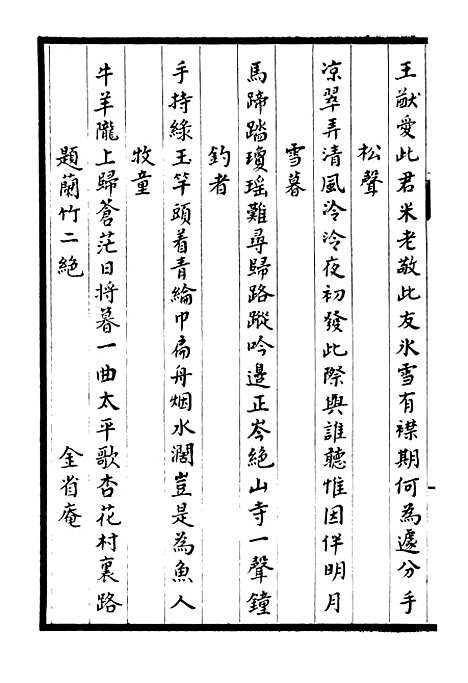 王猷愛此君米老敬此友氷雪有襟期何為遽分手
松聲
凉翠弄清風泠泠夜初發此際與誰聽惟因伴明月
雪暮
馬蹄踏瓊瑶難尋歸路蹤吟邊正岑絶山寺一聲鐘
釣者
手持綠玉竿頭着青綸巾扁舟烟水濶豈是為魚人
牧童
牛羊隴上歸蒼茫日將暮一曲太平歌杏花村裏路
題蘭竹二絶 金省庵